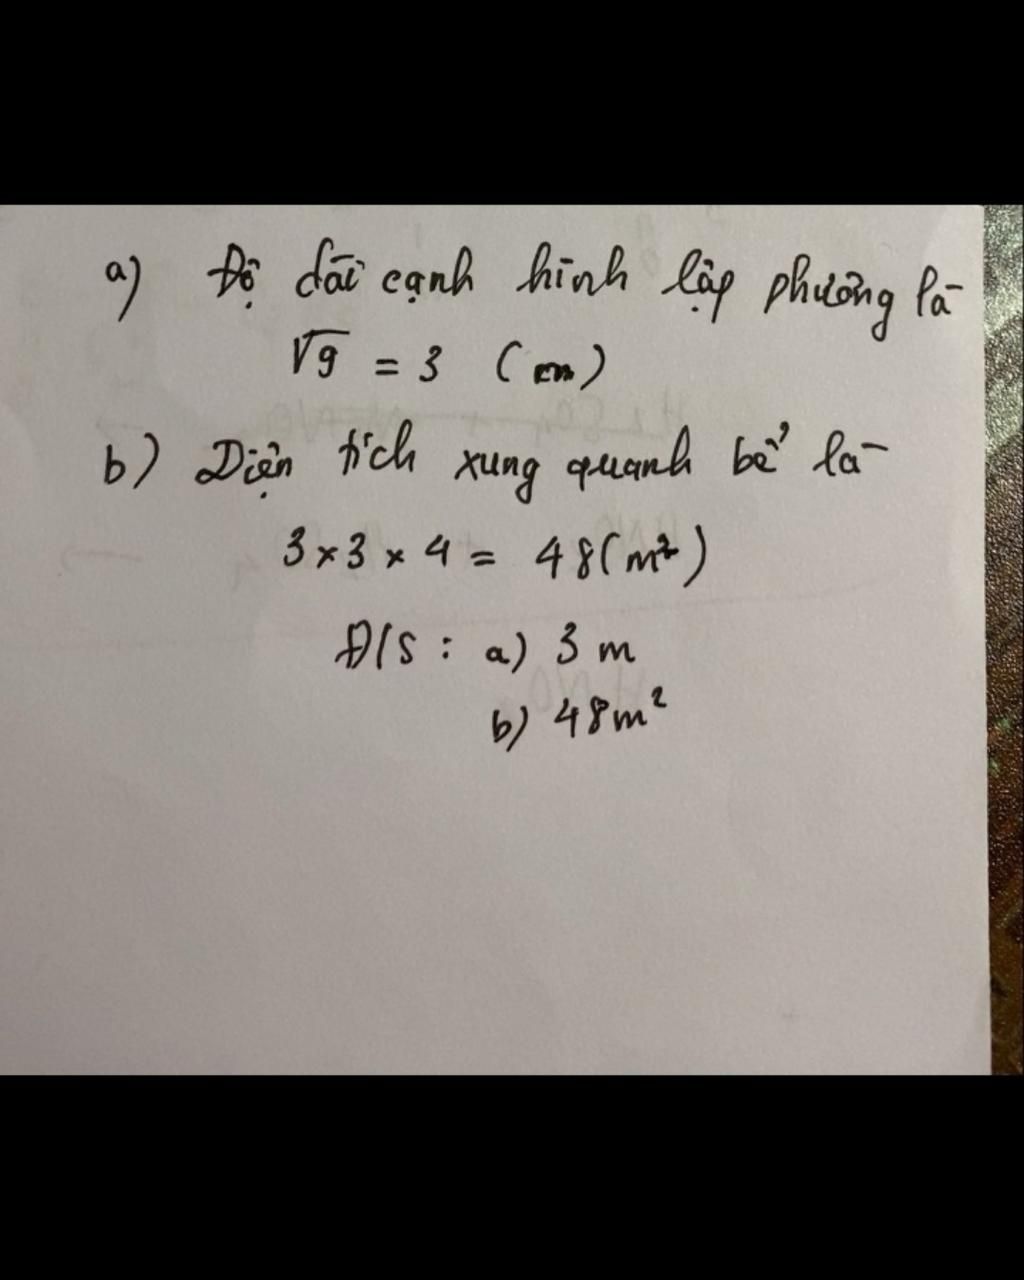 a) Độ dài cạnh hình lập phương là
√9 = 3 (m)
b) Diện tích xung quanh bể là
3 × 3 × 4 = 48 (m²)
Đ/S : a) 3 m
b) 48 m²